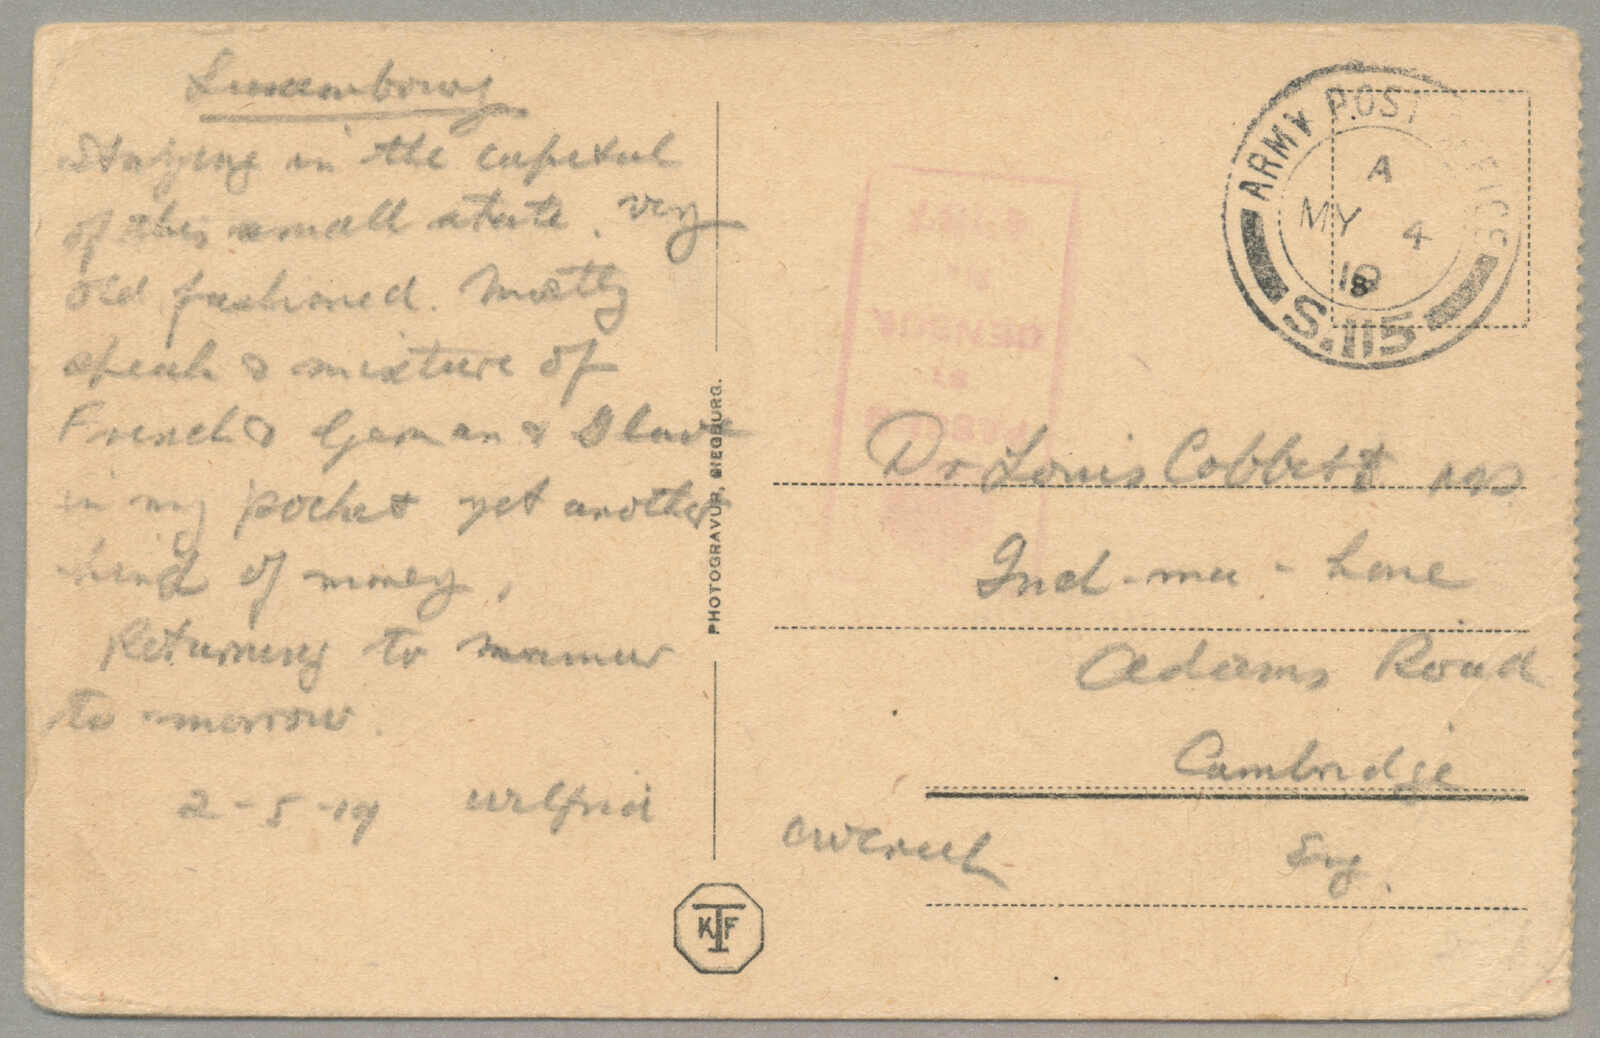 Luxembourg
Staying in the capital
of this small state. Very
old fashioned. Mostly
speak a mixture of
French & German & I have
in my pocket yet another
kind of money.
Returning to Namur
to-morrow.
2-5-19 Wilfrid
PHOTOGRAVUR, SIEGBURG.
KTF
ARMY POST OFFICE
A
MY 4
19
S.115
Dr Louis Cobbett MD
Ind-ma-
Adams Road
Cambridge
Eng.